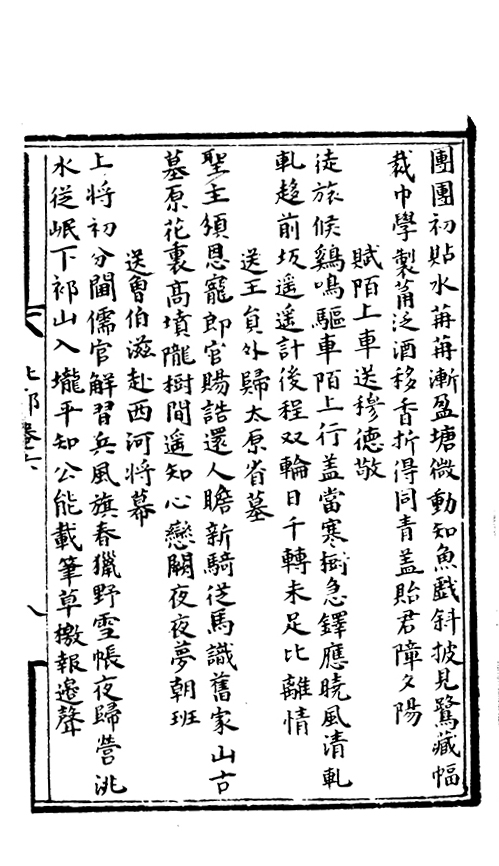 團團初貼水苒苒漸盈塘微動知魚戲斜披見鷺藏幅
裁巾學製筩泛酒移香折得同青盖貽君障夕陽
賦陌上車送穆德敬
徒旅候鷄鳴驅車陌上行盖當寒樹急鐸應曉風清軋
軋趍前坂遥遥計後程双輪日千轉未足比離情
送王貟外歸太原省墓
聖主頒恩寵郎官賜誥還人瞻新騎從馬識舊家山古
墓原花裏高墳隴樹間遥知心戀闕夜夜夢朝班
送曹伯滋赴西河將幕
上將初分閫儒官解習兵風旗春獵野雪帳夜歸營洮
水從岷下祁山入壠平知公能載筆草檄報邉聲
卷六
八